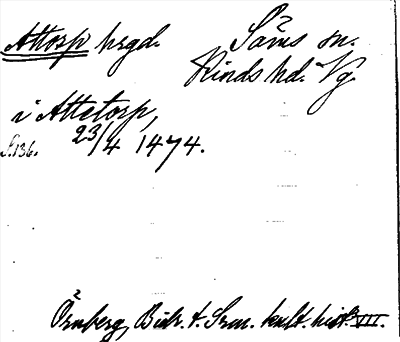 Attorp hrgd.
Såms sn.
Kinds hd. Vg.
i Attetorp,
S. 136. 23/4 1474.
Örnberg, Bidr. t. Srm. kult. hist. VII.